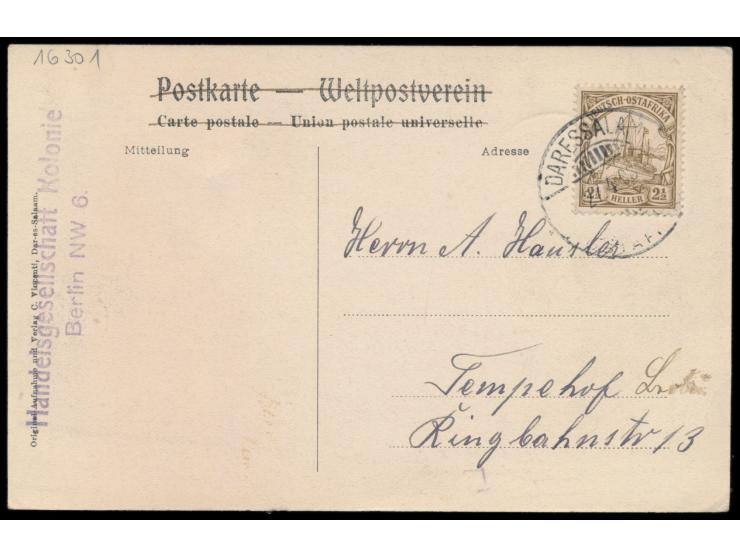 16301
Postkarte — Weltpostverein
Carte postale — Union postale universelle
Mitteilung
Adresse
DEUTSCH-OSTAFRIKA
2½ 2½
HELLER
DARESSALA
Herrn A. Hansler
Tempehof
Ringbahnstr 13
Handelsgesellschaft Kolonie
Berlin NW 6.
Original-Aufnahme und Verlag C. Vincenti, Dar-es-Salaam.